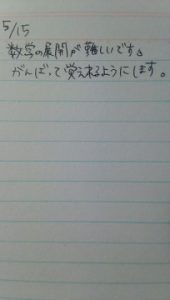 5/15
数学の展開が難しいです。
がんばって覚えれるようにします。